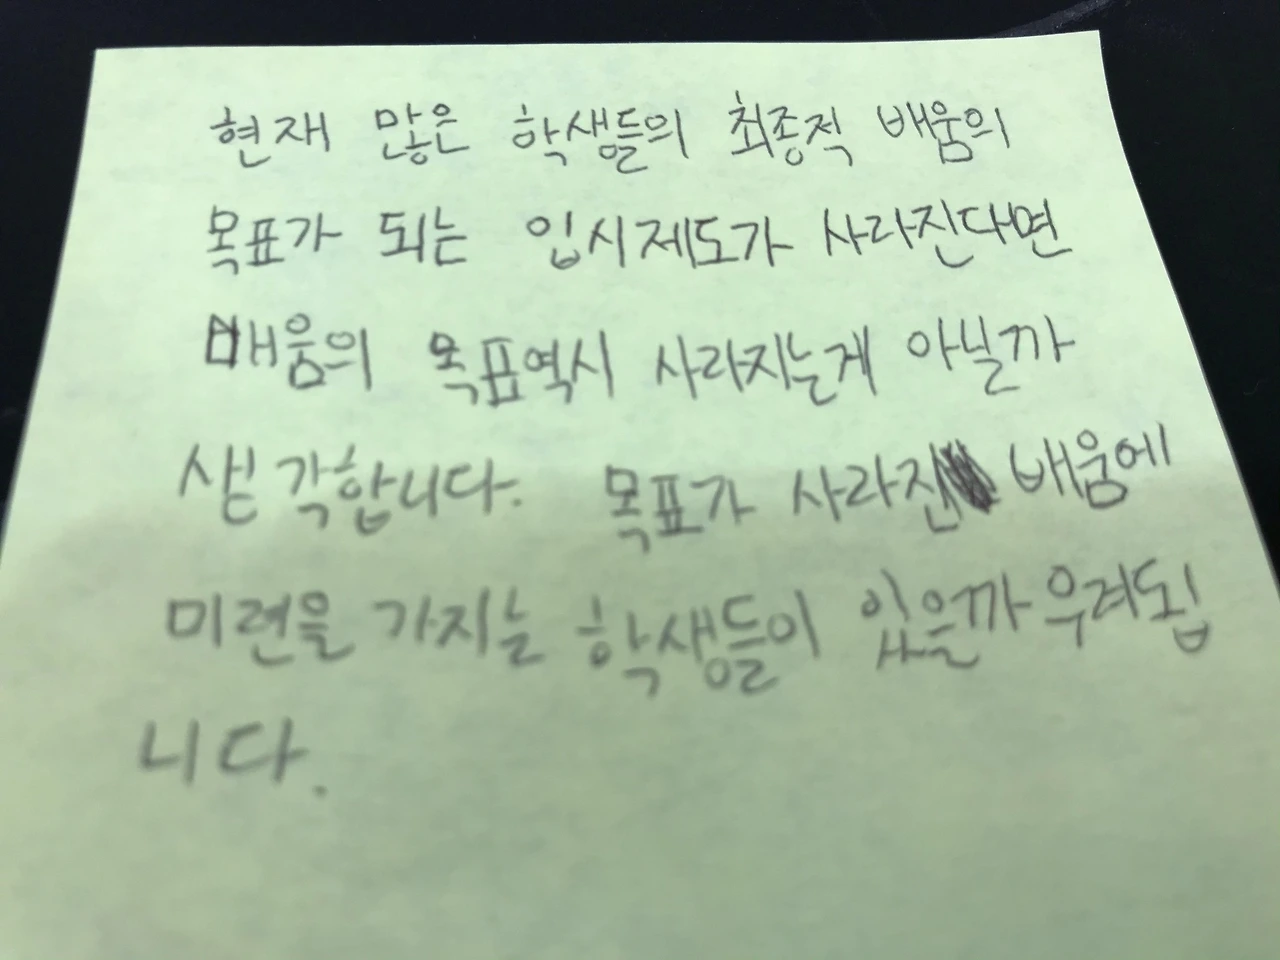 현재 많은 학생들의 최종적 배움의
목표가 되는 입시제도가 사라진다면
배움의 목표역시 사라지는게 아닐까
생각합니다. 목표가 사라진 배움에
미련을 가지는 학생들이 있을까 우려됩
니다.